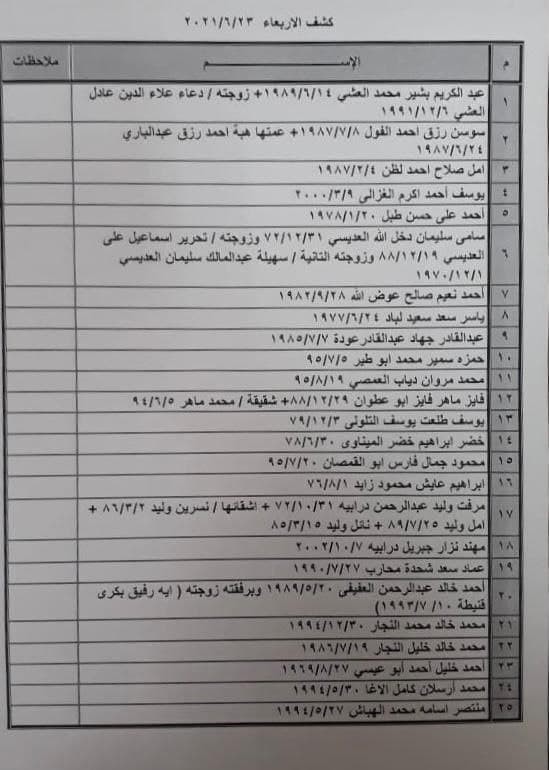 كشف الاربعاء ٢٠٢١/٦/٢٣
م الإســـم ملاحظات
١ عبد الكريم بشير محمد العشي ١٩٨٩/٦/١٤+ زوجته / دعاء علاء الدين عادل
العشي ١٩٩١/١٢/٦
٢ سوسن رزق احمد الفول ١٩٨٧/٧/٨+ عمتها هبة احمد رزق عبدالباري
١٩٨٧/٦/٢٤
٣ امل صلاح احمد لظن ١٩٨٧/٢/٤
٤ يوسف أحمد اكرم الغزالى ٢٠٠٠/٣/٩
٥ أحمد على حسن طبل ١٩٧٨/١/٢٠
٦ سامى سليمان دخل الله العديسي ٧٢/١٢/٣١ وزوجته / تحرير اسماعيل على
العديسي ٨٨/١٢/١٩ وزوجته الثانية / سهيلة عبدالمالك سليمان العديسي
١٩٧٠/١٢/١
٧ أحمد نعيم صالح عوض الله ١٩٨٢/٩/٢٨
٨ ياسر سعد سعيد لباد ١٩٧٧/٦/٢٤
٩ عبدالقادر جهاد عبدالقادرعودة ١٩٨٥/٧/٧
١٠ حمزه سمير محمد ابو طير ٩٥/٧/٥
١١ محمد مروان دياب العمصي ٩٥/٨/١٩
١٢ فايز ماهر فايز ابو عطوان ٨٨/١٢/٢٩+ شقيقة / محمد ماهر ٩٤/٦/٥
١٣ يوسف طلعت يوسف التلولى ٧٩/١٢/٣
١٤ خضر ابراهيم خضر الميناوى ٧٨/٦/٣٠
١٥ محمود جمال فارس ابو القمصان ٩٥/٧/٢٠
١٦ ابراهيم عايش محمود زايد ٧٦/٨/١
١٧ مرفت وليد عبدالرحمن درابيه ٧٢/١٠/٣١ + اشقائها / نسرين وليد ٨٦/٣/٢ +
امل وليد ٨٩/٧/٢٥ + نائل وليد ٨٥/٣/١٥
١٨ مهند نزار جبريل درابيه ٢٠٠٢/١٠/٧
١٩ عماد سعد شحدة محارب ١٩٩٠/٧/٢٧
٢٠ أحمد خالد عبدالرحمن العفيفى ١٩٨٩/٥/٢٠ وبرفقته زوجته ( ايه رفيق بكرى
قنيطة ١٩٩٣/٧/١٠)
٢١ محمد خالد محمد النجار ١٩٩٤/١٢/٣٠
٢٢ محمد خالد خليل النجار ١٩٨٦/٧/١٩
٢٣ أحمد خليل أحمد أبو عيسي ١٩٦٩/٨/٢٧
٢٤ محمد أرسلان كامل الاغا ١٩٩٤/٥/٣٠
٢٥ منتصر اسامه محمد الهباش ١٩٩٤/٥/٢٧